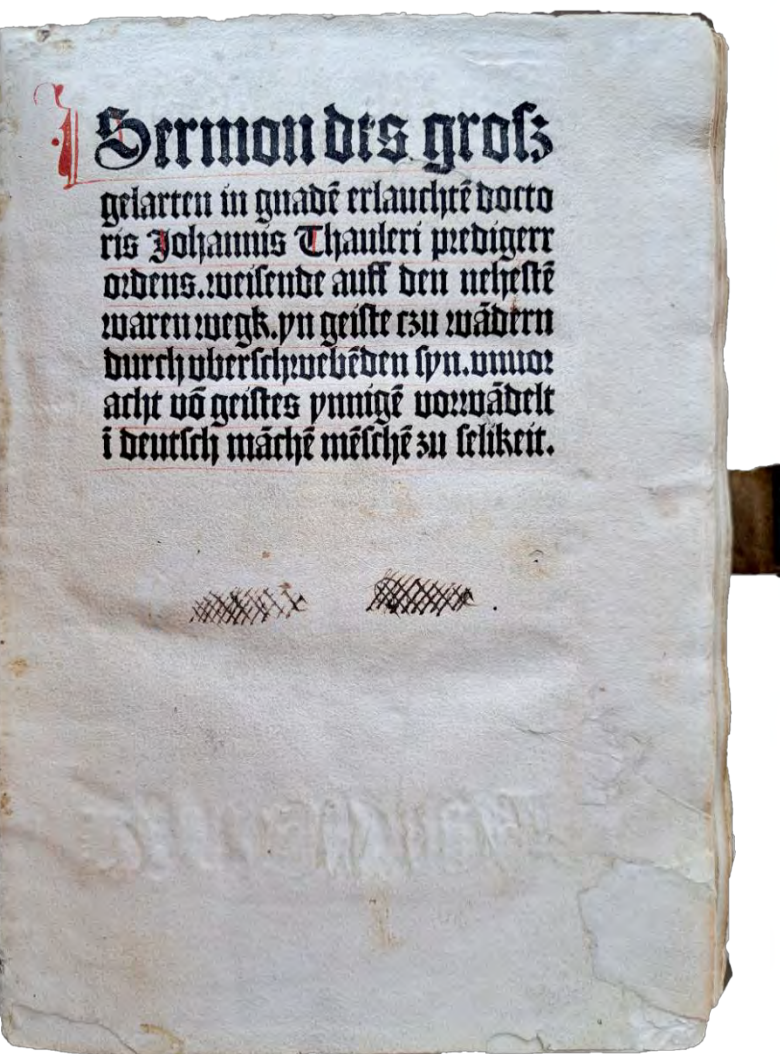 Sermon des groſz
gelarten in gnadē erlauchtē docto
ris Johannis Thauleri predigerr
ordens.weiſende auff den neheſtē
waren wegk.yn geiſte czu wādern
durch vberſchwebēden ſyn.vnuor
acht vō geiſtes ynnigē vorwādelt
ī deutſch māchē mēſchē zu ſelikeit.